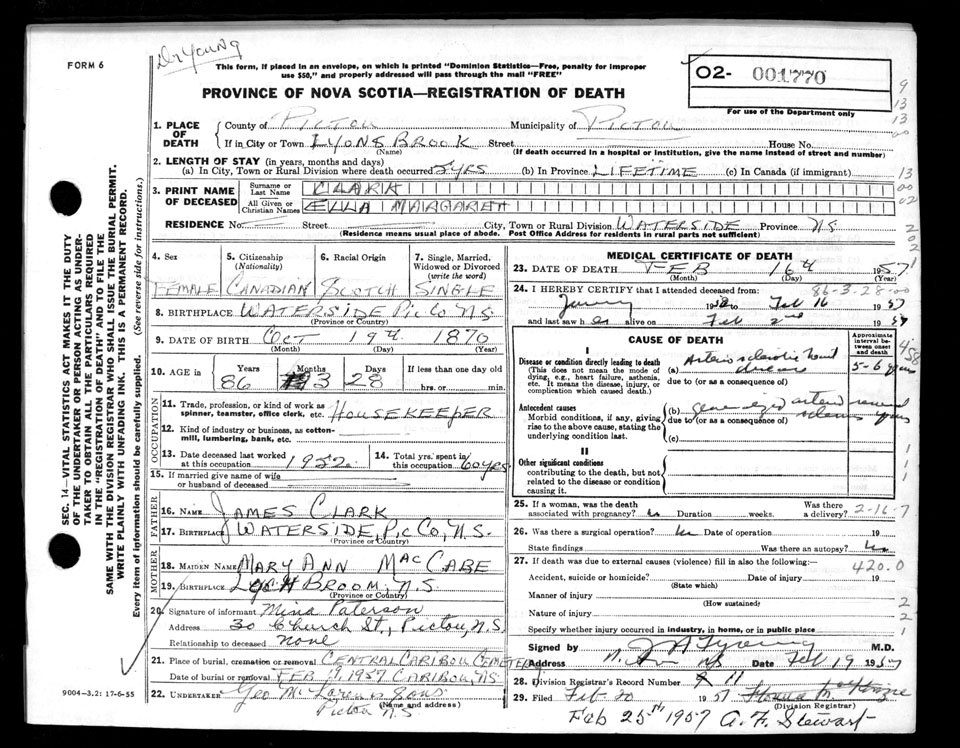 Dr Young
FORM 6
This form, if placed in an envelope, on which is printed "Dominion Statistics—Free, penalty for improper
use $50," and properly addressed will pass through the mail "FREE"
O2- 001770
For use of the Department only
PROVINCE OF NOVA SCOTIA—REGISTRATION OF DEATH
1. PLACE OF DEATH
County of PICTOU Municipality of PICTOU
If in City or Town LYONS BROOK Street House No.
(Name) (If death occurred in a hospital or institution, give the name instead of street and number)
2. LENGTH OF STAY (in years, months and days)
(a) In City, Town or Rural Division where death occurred 5 YRS (b) In Province LIFETIME (c) In Canada (if immigrant)
3. PRINT NAME OF DECEASED
Surname or Last Name CLARK
All Given or Christian Names ELLA MARGARET
RESIDENCE No. Street City, Town or Rural Division WATERSIDE Province N S
(Residence means usual place of abode. Post Office Address for residents in rural parts not sufficient)
4. Sex 5. Citizenship (Nationality) 6. Racial Origin 7. Single, Married, Widowed or Divorced (write the word)
FEMALE CANADIAN SCOTCH SINGLE
8. BIRTHPLACE WATERSIDE Pic Co N.S.
(Province or Country)
9. DATE OF BIRTH Oct 19th 1870
(Month) (Day) (Year)
10. AGE in Years Months Days If less than one day old
86 3 28 hrs. or min.
OCCUPATION
11. Trade, profession, or kind of work as
spinner, teamster, office clerk, etc. HOUSEKEEPER
12. Kind of industry or business, as cotton-
mill, lumbering, bank, etc.
13. Date deceased last worked at this occupation 1952. 14. Total yrs. spent in this occupation 60 yrs
15. If married give name of wife
or husband of deceased
FATHER
16. NAME JAMES CLARK
17. BIRTHPLACE WATERSIDE, Pic Co, N.S.
(Province or Country)
MOTHER
18. MAIDEN NAME MARY ANN MacCABE
19. BIRTHPLACE LOCH BROOM, N.S
(Province or Country)
20. Signature of informant Mina Paterson
Address 30 Church St., Pictou, N.S.
Relationship to deceased none
21. Place of burial, cremation or removal CENTRAL CARIBOU CEMETERY
Date of burial or removal FEB 19, 1957 CARIBOU, N.S
22. UNDERTAKER Geo McLaren & Sons
Pictou N.S
(Name and address)
9004—3.2: 17-6-55
SEC. 14—VITAL STATISTICS ACT MAKES IT THE DUTY
OF THE UNDERTAKER OR PERSON ACTING AS UNDER-
TAKER TO OBTAIN ALL THE PARTICULARS REQUIRED
IN THE "REGISTRATION OF DEATH" AND TO FILE THE
SAME WITH THE DIVISION REGISTRAR WHO SHALL ISSUE THE BURIAL PERMIT.
WRITE PLAINLY WITH UNFADING INK. THIS IS A PERMANENT RECORD.
Every item of information should be carefully supplied. (See reverse side for instructions.)
MEDICAL CERTIFICATE OF DEATH
23. DATE OF DEATH FEB 16th 1957
(Month) (Day) (Year)
24. I HEREBY CERTIFY that I attended deceased from: 86-3-28-00
to Feb 16 1957
and last saw her alive on Feb 2nd 1957
CAUSE OF DEATH
Approximate interval between onset and death
I
Disease or condition directly leading to death
(This does not mean the mode of
dying, e.g., heart failure, asthenia,
etc. It means the disease, injury, or
complication which caused death.)
(a) Arterio sclerotic heart disease 5-6 years
due to (or as a consequence of)
Antecedent causes
Morbid conditions, if any, giving
rise to the above cause, stating the
underlying condition last.
(b) generalized arterio sclerosis several years
due to (or as a consequence of)
(c)
II
Other significant conditions
contributing to the death, but not
related to the disease or condition
causing it.
25. If a woman, was the death
associated with pregnancy? Duration weeks. Was there a delivery? 2-16-7
26. Was there a surgical operation? Date of operation 19
State findings Was there an autopsy?
27. If death was due to external causes (violence) fill in also the following:— 420.0
Accident, suicide or homicide? Date of injury 19
(State which)
Manner of injury
(How sustained)
Nature of injury
Specify whether injury occurred in industry, in home, or in public place
Signed by Young M.D.
Address N.S Date Feb 19 1957
28. Division Registrar's Record Number 11
29. Filed Feb 20 1957
(Division Registrar)
Feb 25th 1957 A. F. Stewart